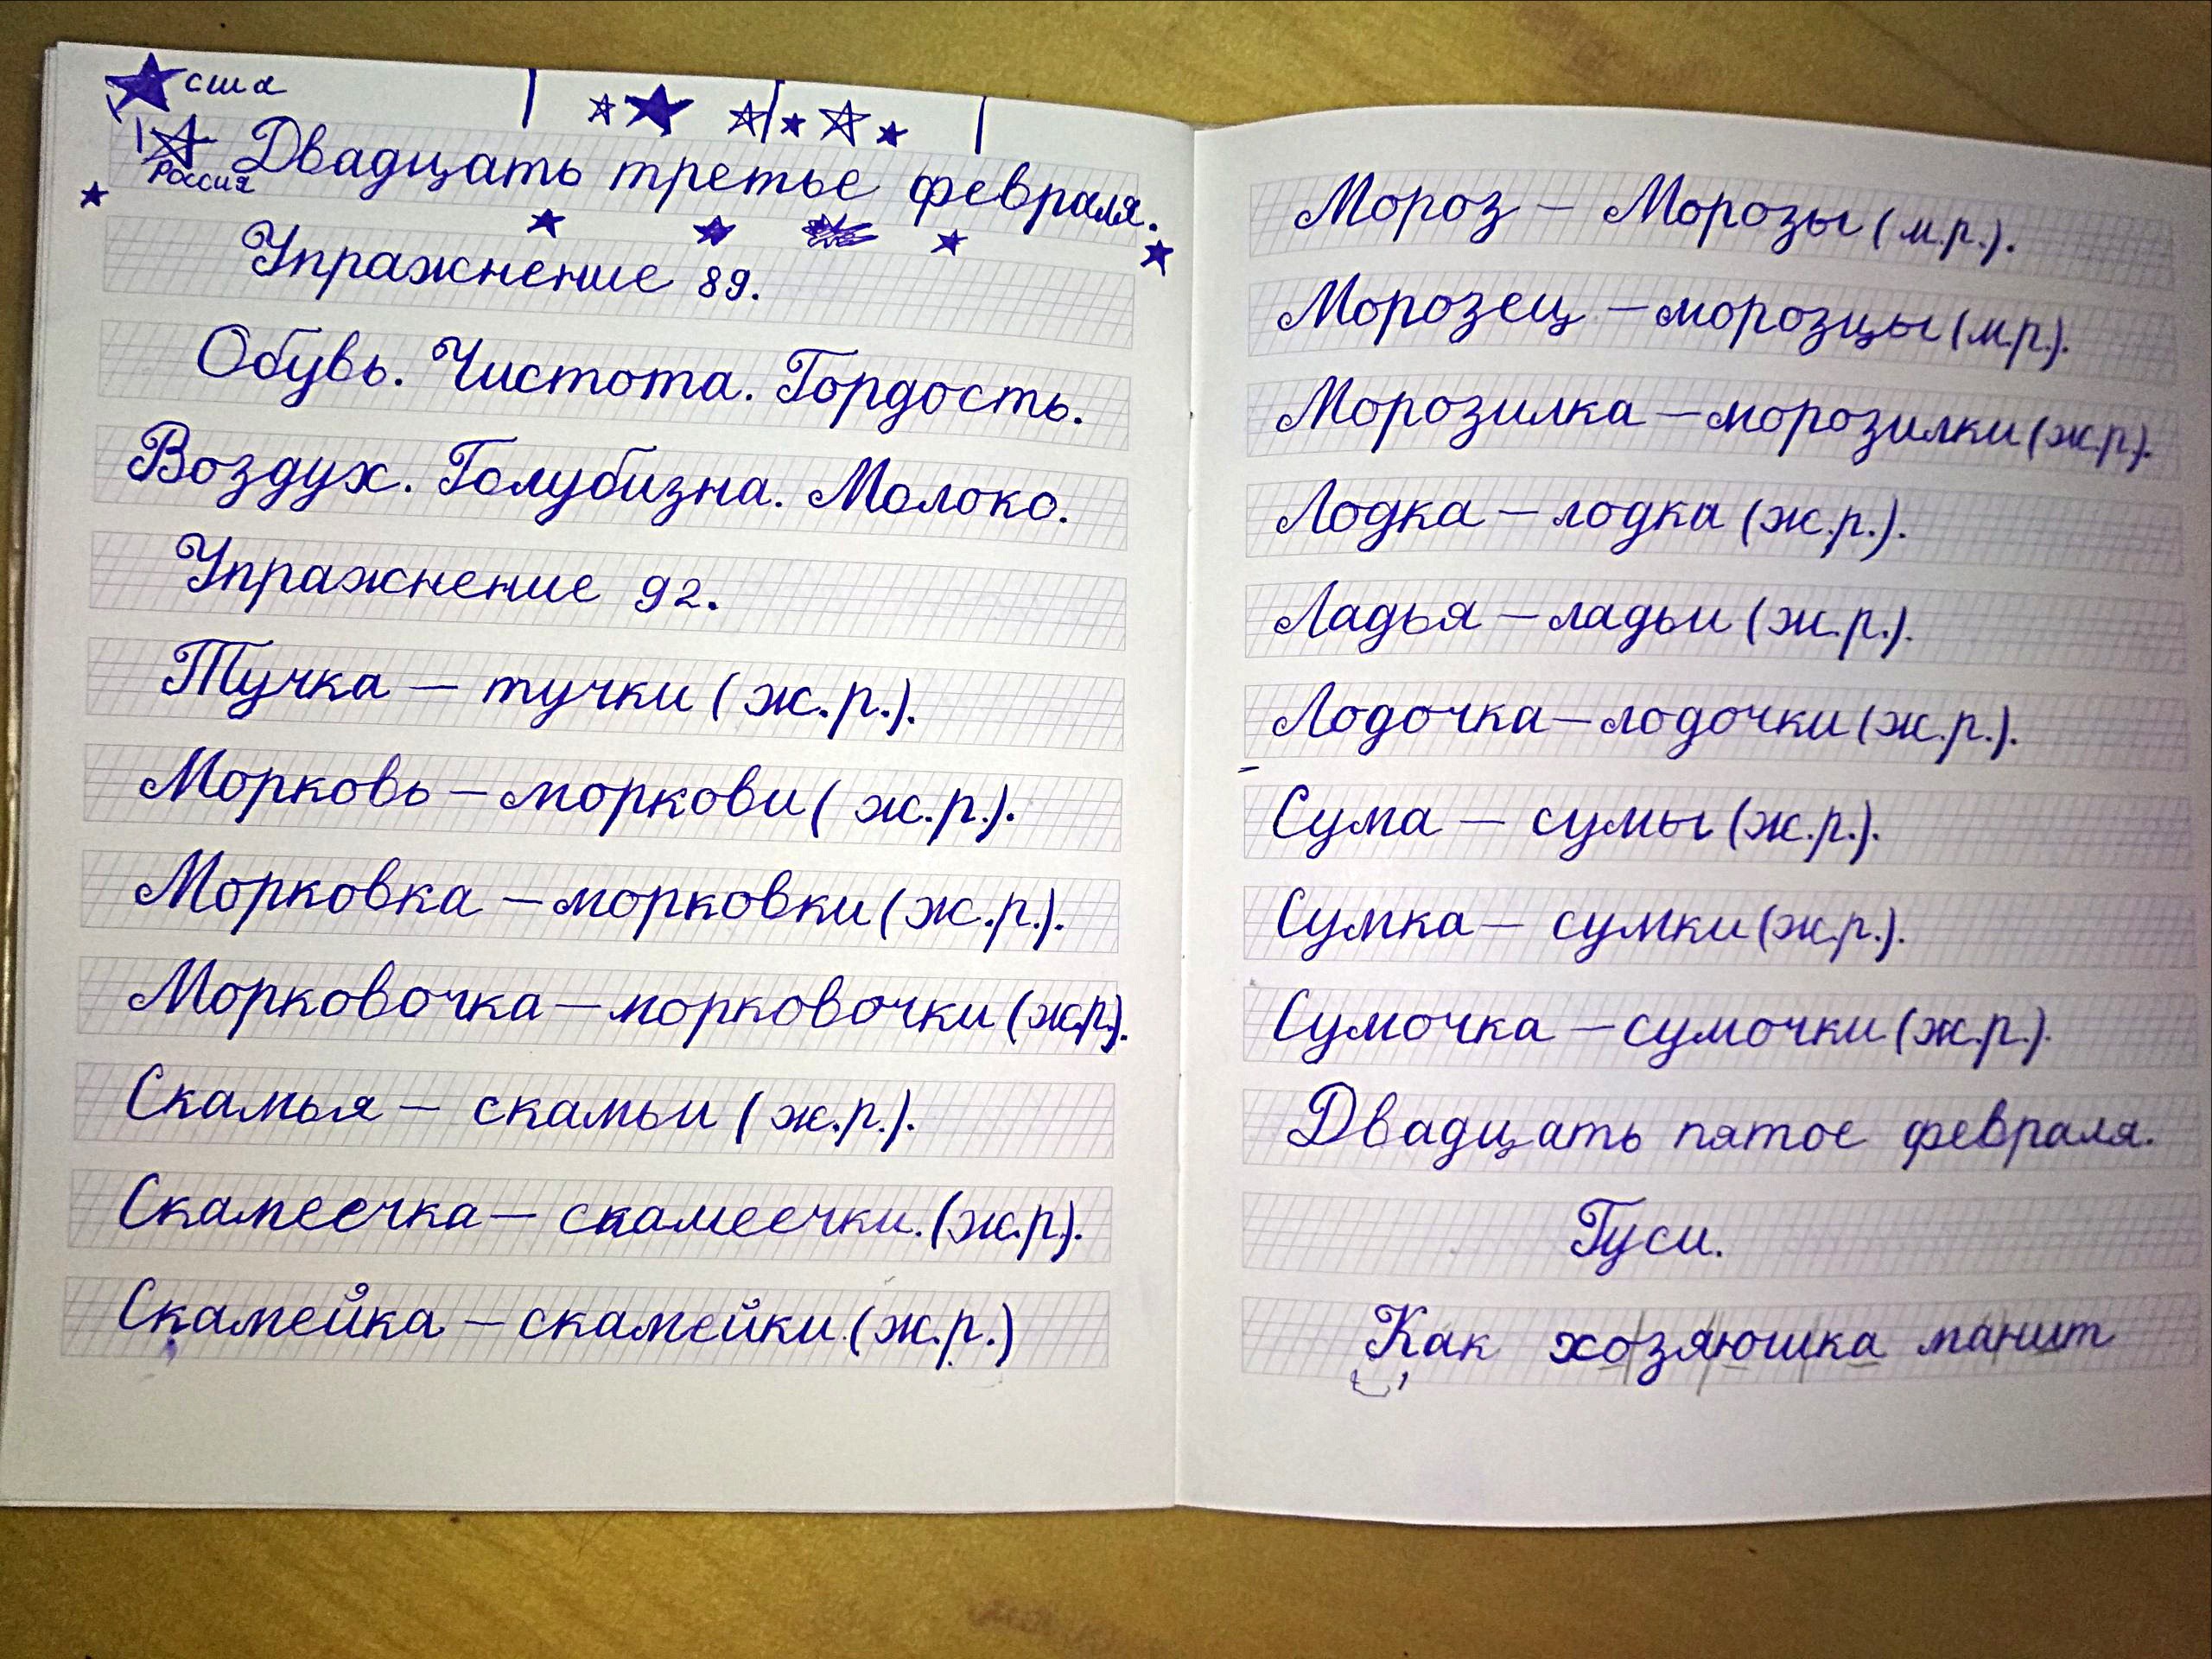 сша
Россия
Двадцать третье февраля.
Упражнение 89.
Обувь. Чистота. Гордость.
Воздух. Голубизна. Молоко.
Упражнение 92.
Тучка – тучки (ж.р.).
Морковь – моркови (ж.р.).
Морковка – морковки (ж.р.).
Морковочка – морковочки (ж.р.).
Скамья – скамьи (ж.р.).
Скамеечка – скамеечки. (ж.р).
Скамейка – скамейки (ж.р.)
Мороз – Морозы (м.р.).
Морозец – морозцы (м.р.).
Морозилка – морозилки (ж.р).
Лодка – лодка (ж.р.).
Ладья – ладьи (ж.р.).
Лодочка – лодочки (ж.р.).
Сума – сумы (ж.р.).
Сумка – сумки (ж.р.).
Сумочка – сумочки (ж.р.).
Двадцать пятое февраля.
Гуси.
Как хозяюшка манит